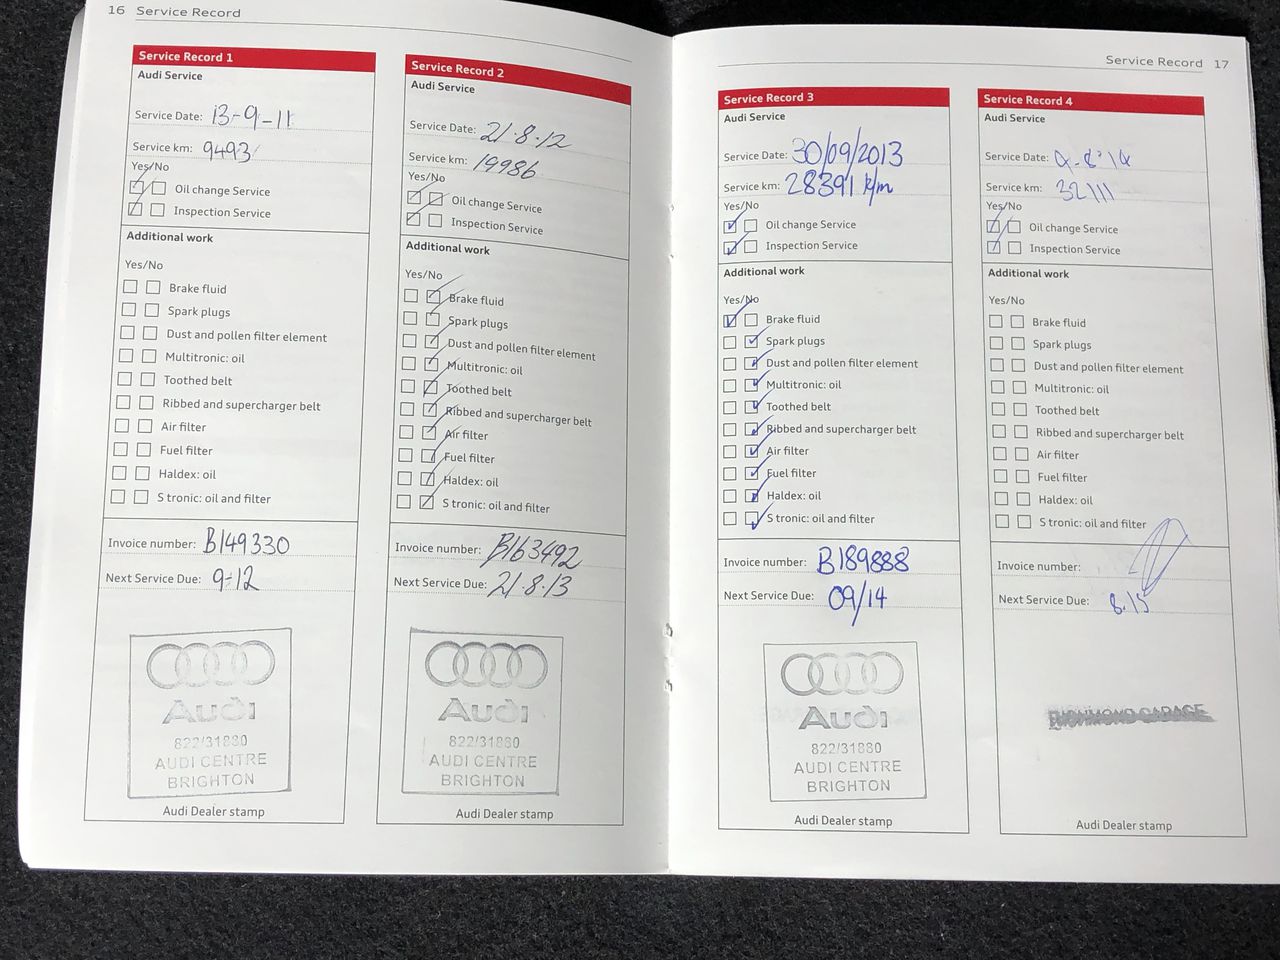 16 Service Record
Service Record 1
Audi Service
Service Date: 13-9-11
Service km: 9493
Yes/No
Oil change Service
Inspection Service
Additional work
Yes/No
Brake fluid
Spark plugs
Dust and pollen filter element
Multitronic: oil
Toothed belt
Ribbed and supercharger belt
Air filter
Fuel filter
Haldex: oil
S tronic: oil and filter
Invoice number: B149330
Next Service Due: 9-12
Audi
822/31880
AUDI CENTRE
BRIGHTON
Audi Dealer stamp
Service Record 2
Audi Service
Service Date: 21.8.12
Service km: 19986
Yes/No
Oil change Service
Inspection Service
Additional work
Yes/No
Brake fluid
Spark plugs
Dust and pollen filter element
Multitronic: oil
Toothed belt
Ribbed and supercharger belt
Air filter
Fuel filter
Haldex: oil
S tronic: oil and filter
Invoice number: B163492
Next Service Due: 21.8.13
Audi
822/31880
AUDI CENTRE
BRIGHTON
Audi Dealer stamp
Service Record 17
Service Record 3
Audi Service
Service Date: 30/09/2013
Service km: 28391 km
Yes/No
Oil change Service
Inspection Service
Additional work
Yes/No
Brake fluid
Spark plugs
Dust and pollen filter element
Multitronic: oil
Toothed belt
Ribbed and supercharger belt
Air filter
Fuel filter
Haldex: oil
S tronic: oil and filter
Invoice number: B189888
Next Service Due: 09/14
Audi
822/31880
AUDI CENTRE
BRIGHTON
Audi Dealer stamp
Service Record 4
Audi Service
Service Date:
Service km: 32111
Yes/No
Oil change Service
Inspection Service
Additional work
Yes/No
Brake fluid
Spark plugs
Dust and pollen filter element
Multitronic: oil
Toothed belt
Ribbed and supercharger belt
Air filter
Fuel filter
Haldex: oil
S tronic: oil and filter
Invoice number:
Next Service Due: 8.15
RICHMOND GARAGE
Audi Dealer stamp